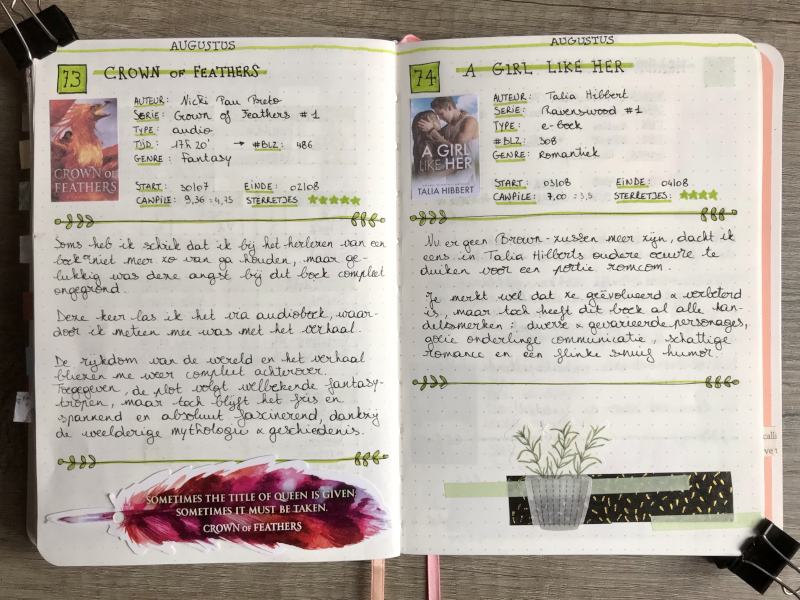 AUGUSTUS
73 CROWN OF FEATHERS
AUTEUR: Nicki Pau Preto
SERIE: Crown of Feathers #1
TYPE: audio
TIJD: 17h 20' → #BLZ: 486
GENRE: Fantasy
CROWN OF FEATHERS
START: 30/07 EINDE: 02/08
CAWPILE: 9,36 = 4,75 STERRETJES:
Soms heb ik schrik dat ik bij het herlezen van een
boek niet meer zo van ga houden, maar ge-
lukkig was deze angst bij dit boek compleet
ongegrond.
Deze keer las ik het via audioboek, waar-
door ik meteen mee was met het verhaal.
De rijkdom van de wereld en het verhaal
bliezen me weer compleet achterover.
Toegegeven, de plot volgt welbekende fantasy-
tropen, maar toch blijft het fris en
spannend en absoluut fascinerend, dankzij
de weelderige mythologie & geschiedenis.
SOMETIMES THE TITLE OF QUEEN IS GIVEN;
SOMETIMES IT MUST BE TAKEN.
CROWN OF FEATHERS
AUGUSTUS
74 A GIRL LIKE HER
AUTEUR: Talia Hibbert
SERIE: Ravenswood #1
TYPE: e-boek
#BLZ: 308
GENRE: Romantiek
A GIRL
LIKE HER
TALIA HIBBERT
START: 03/08 EINDE: 04/08
CAWPILE: 7,00 = 3,5 STERRETJES:
Nu er geen Brown-zussen meer zijn, dacht ik
eens in Talia Hibberts oudere oeuvre te
duiken voor een portie romcom.
Je merkt wel dat ze geëvolueerd & verbeterd
is, maar toch heeft dit boek al alle han-
delsmerken: diverse & gevarieerde personages,
goeie onderlinge communicatie, schattige
romance en een flinke snuif humor.